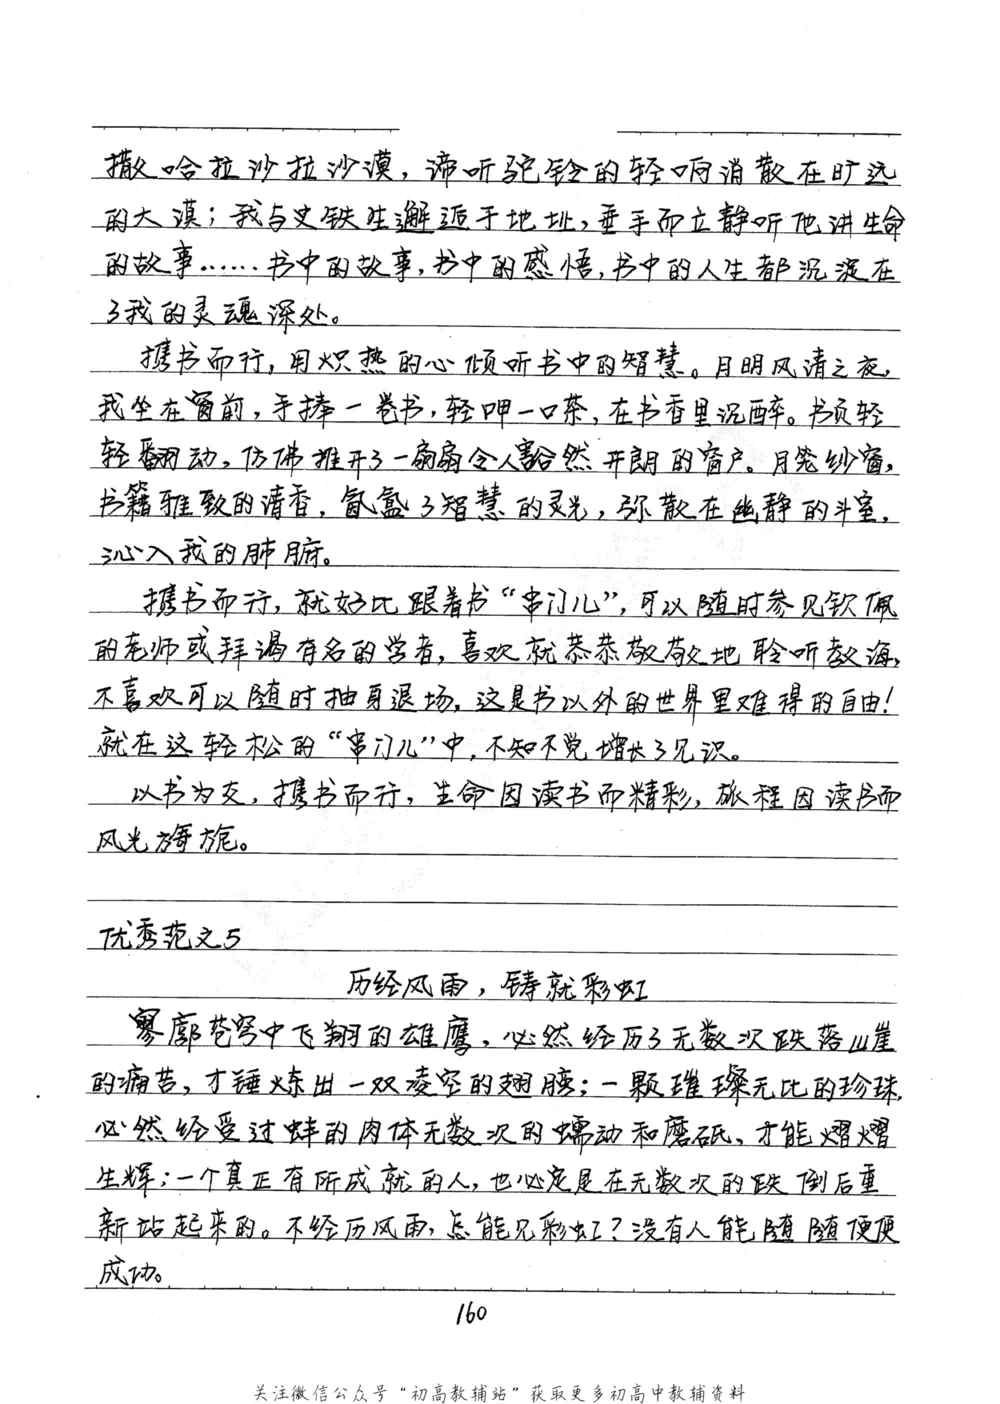 撒哈拉沙拉沙漠，谛听驼铃的轻响消散在旷远
的大漠；我与史铁生邂逅于地址，垂手而立静听他讲生命
的故事……书中的故事，书中的感悟，书中的人生都沉淀在
了我的灵魂深处。
携书而行，用炽热的心倾听书中的智慧。月明风清之夜，
我坐在窗前，手捧一卷书，轻呷一口茶，在书香里沉醉。书页轻
轻翻动，仿佛推开了一扇扇令人豁然开朗的窗户。月笼纱窗，
书籍雅致的清香，氤氲了智慧的灵光，弥散在幽静的斗室，
沁入我的肺腑。
携书而行，就好比跟着书“串门儿”，可以随时参见钦佩
的老师或拜谒有名的学者，喜欢就恭恭敬敬地聆听教诲，
不喜欢可以随时抽身退场，这是书以外的世界里难得的自由！
就在这轻松的“串门儿”中，不知不觉增长了见识。
以书为友，携书而行，生命因读书而精彩，旅程因读书而
风光旖旎。
优秀范文5
历经风雨，铸就彩虹
寥廓苍穹中飞翔的雄鹰，必然经历了无数次跌落山崖
的痛苦，才锤炼出一双凌空的翅膀；一颗璀璨无比的珍珠，
必然经受过蚌的肉体无数次的蠕动和磨砥，才能熠熠
生辉；一个真正有所成就的人，也必定是在无数次的跌倒后重
新站起来的。不经历风雨，怎能见彩虹？没有人能随随便便
成功。
160
关注微信公众号“初高教辅站”获取更多初高中教辅资料